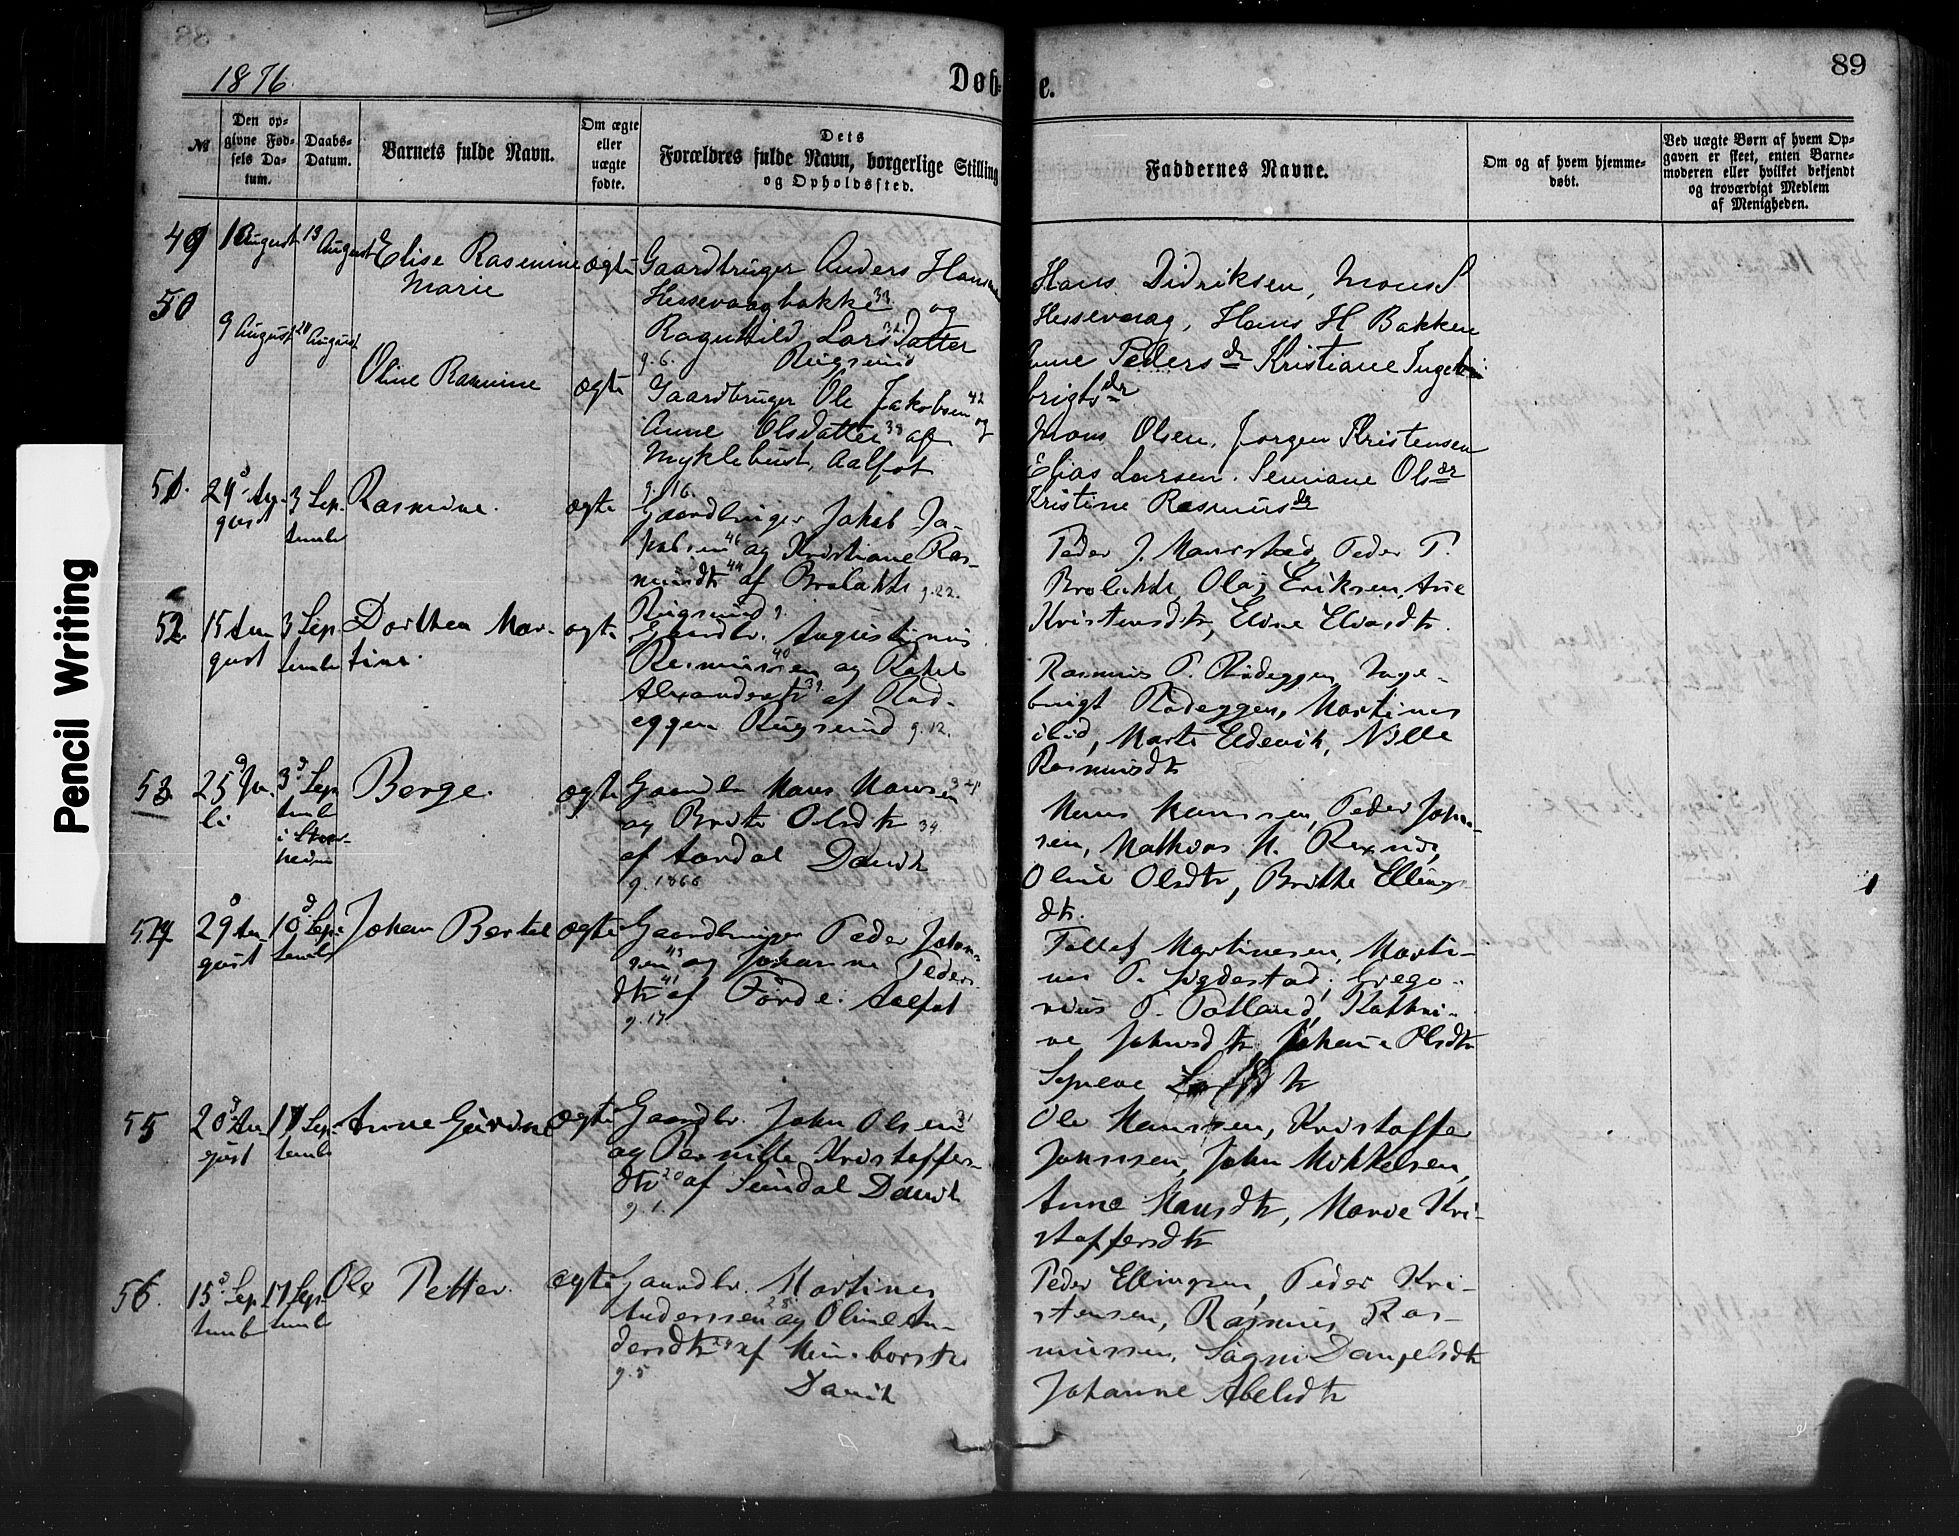 88
1876.
Døb-
e.
89
Pencil Writing
№
Den op-
givne Fød-
sels Da-
tum.
Daabs-
Datum.
Barnets fulde Navn.
Om ægte
eller
uægte
fødte.
Dets
Forældres fulde Navn, borgerlige Stilling
og Opholdssted.
Faddernes Navne.
Om og af hvem hjemme-
døbt.
Ved uægte Børn af hvem Op-
gaven er skeet, enten Barne-
moderen eller hvilket bekjendt
og troværdigt Medlem
af Menigheden.
49
August 13 August
Elise Rasmine
Marie
ægte
Gaardbruger Anders Hansen
Hessevaagbakke 33 og
Ragnhild Lars 32 Datter
g. 6. Rugsund
Hans Didriksen, Mons
Hessevaag, Hans H Bakken
Anne Peders dr Kristiane Inge-
brigts dr
50
9 August 20 August
Oline Rasmine
ægte
Gaardbruger Ole Jakobsen 42 og
Anne Olsdatter 38 af
Myklebust, Aalfot
g. 16.
Mons Olsen, Jørgen Kristensen
Elias Larsen. Ols dr
Kristine Rasmus dr
51.
24d Au-
gust
3 Sep.
tember
Rasmine.
ægte
Gaardbruger Jakob Ja-
kobsen 46 og Kristiane Ras-
musdtr 44 af g. 22.
Rugsund
Peder J. Peder P.
Olai Eriksen, Ane
Kristensdtr, Eline
52
15 Au-
gust
3 Sep-
tember
Dorthea Mar-
tine.
ægte
Gaardbr. Augustinus
Rasmussen 40 og Rakel
Alexandersdtr 39. af Rød-
eggen Rugsund g. 12.
Rasmus P. Rødeggen, Inge-
brigt Rødeggen, Martines
ibid, Marte Eldevik, Nille
Rasmusdtr
53
25d Ju-
li
3d Sep
temb
i
heim
Børge.
ægte
Gaardbr Mons Monsen 34
og Brite Olsdtr 34
af Aardal Davik
g. 1866
Mons Hanssen, Peder Johan-
sen, Mathias M.
Oline Olsdtr, Brithe Ellings-
dtr.
54
29 Au-
gust
10d Sep-
temb
Johan Bertel
ægte
Gaardbruger Peder Johan-
sen 43 og Johanne Peders-
dtr 41 af Førde. Aalfot
g. 17.
Tollef Martinesen, Marti-
nus P. Sigdestad, Grego-
rius P. Kathri-
ne Johnsdtr, Johanne Olsdtr
55
20d Au-
gust
17 Sep-
temb
Anne Gurine
ægte
Gaardbr. John Olsen 31
og Pernille Kristoffers-
dtr 20 af Sundal Davik
g. 1.
Ole Hanssen, Kristoffer
Jonssen, John Mikkelsen,
Anne Hansdtr, Marie Kri-
stoffersdtr
56.
15d Sep
temb
17 Sep
temb
Ole Petter.
ægte
Gaardbr. Martines
Anderssen 28 og Oline An-
dersdtr af
g. 5
Davik
Peder Ellingsen, Peder Kri-
stensen, Rasmus Ras-
mussen,
Johanne Abelsdtr